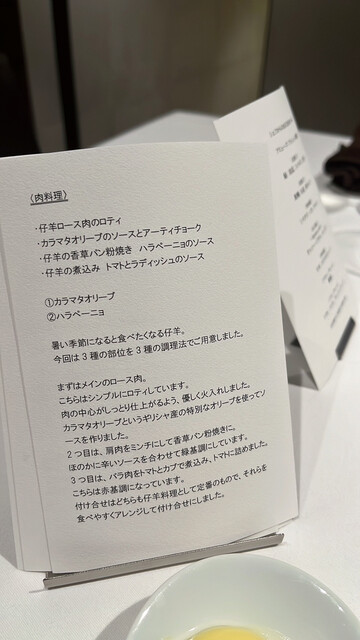 〈肉料理〉
・仔羊ロース肉のロティ
・カラマタオリーブのソースとアーティチョーク
・仔羊の香草パン粉焼き ハラペーニョのソース
・仔羊の煮込み トマトとラディッシュのソース
①カラマタオリーブ
②ハラペーニョ
暑い季節になると食べたくなる仔羊。
今回は3種の部位を3種の調理法でご用意しました。
まずはメインのロース肉。
こちらはシンプルにロティしています。
肉の中心がしっとり仕上がるよう、優しく火入れしました。
カラマタオリーブというギリシャ産の特別なオリーブを使ってソ
ースを作りました。
2つ目は、肩肉をミンチにして香草パン粉焼きに。
ほのかに辛いソースを合わせて緑基調にしています。
3つ目は、バラ肉をトマトとカブで煮込み、トマトに詰めました。
こちらは赤基調になっています。
付け合せはどちらも仔羊料理として定番のもので、それらを
食べやすくアレンジして付け合せにしました。